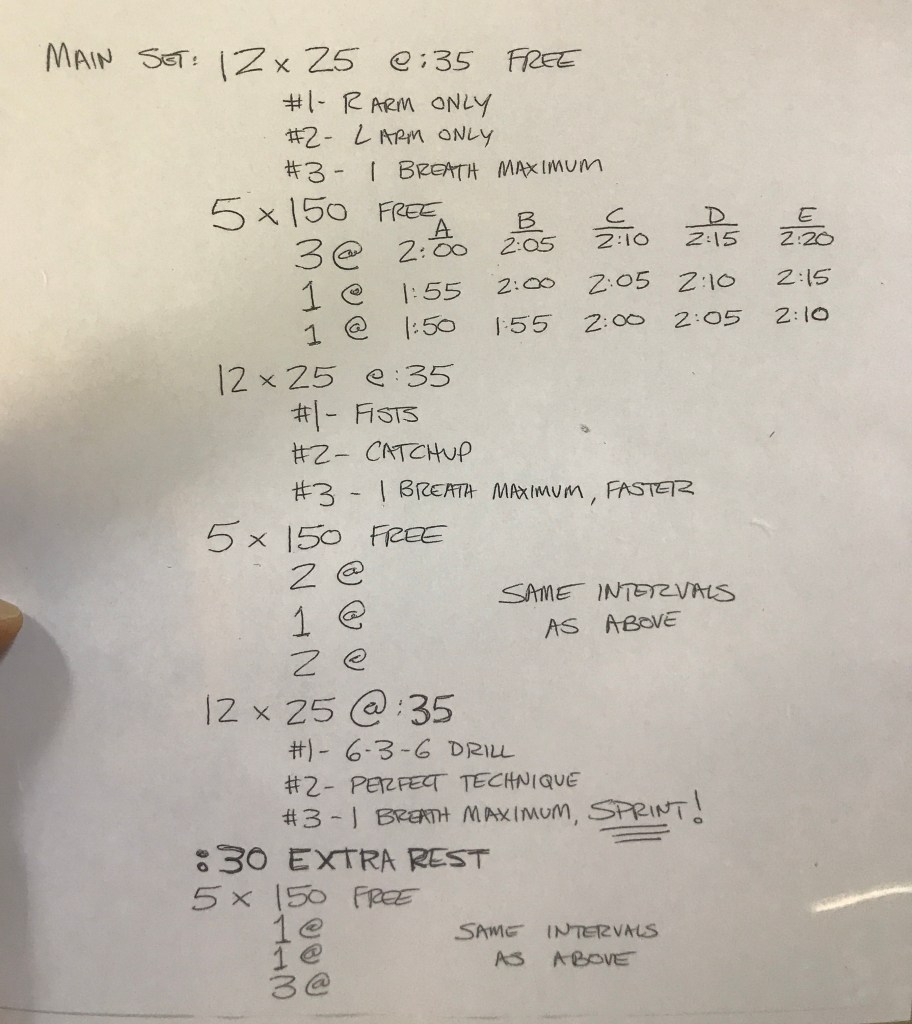 MAIN SET: 12 x 25 @ :35 FREE
#1- R ARM ONLY
#2- L ARM ONLY
#3 - 1 BREATH MAXIMUM
5 x 150 FREE
A B C D E
3 @ 2:00 2:05 2:10 2:15 2:20
1 @ 1:55 2:00 2:05 2:10 2:15
1 @ 1:50 1:55 2:00 2:05 2:10
12 x 25 @ :35
#1- FISTS
#2- CATCHUP
#3 - 1 BREATH MAXIMUM, FASTER
5 x 150 FREE
2 @
1 @
2 @
SAME INTERVALS
AS ABOVE
12 x 25 @ :35
#1- 6-3-6 DRILL
#2- PERFECT TECHNIQUE
#3 - 1 BREATH MAXIMUM, SPRINT!
:30 EXTRA REST
5 x 150 FREE
1 @
1 @
3 @
SAME INTERVALS
AS ABOVE